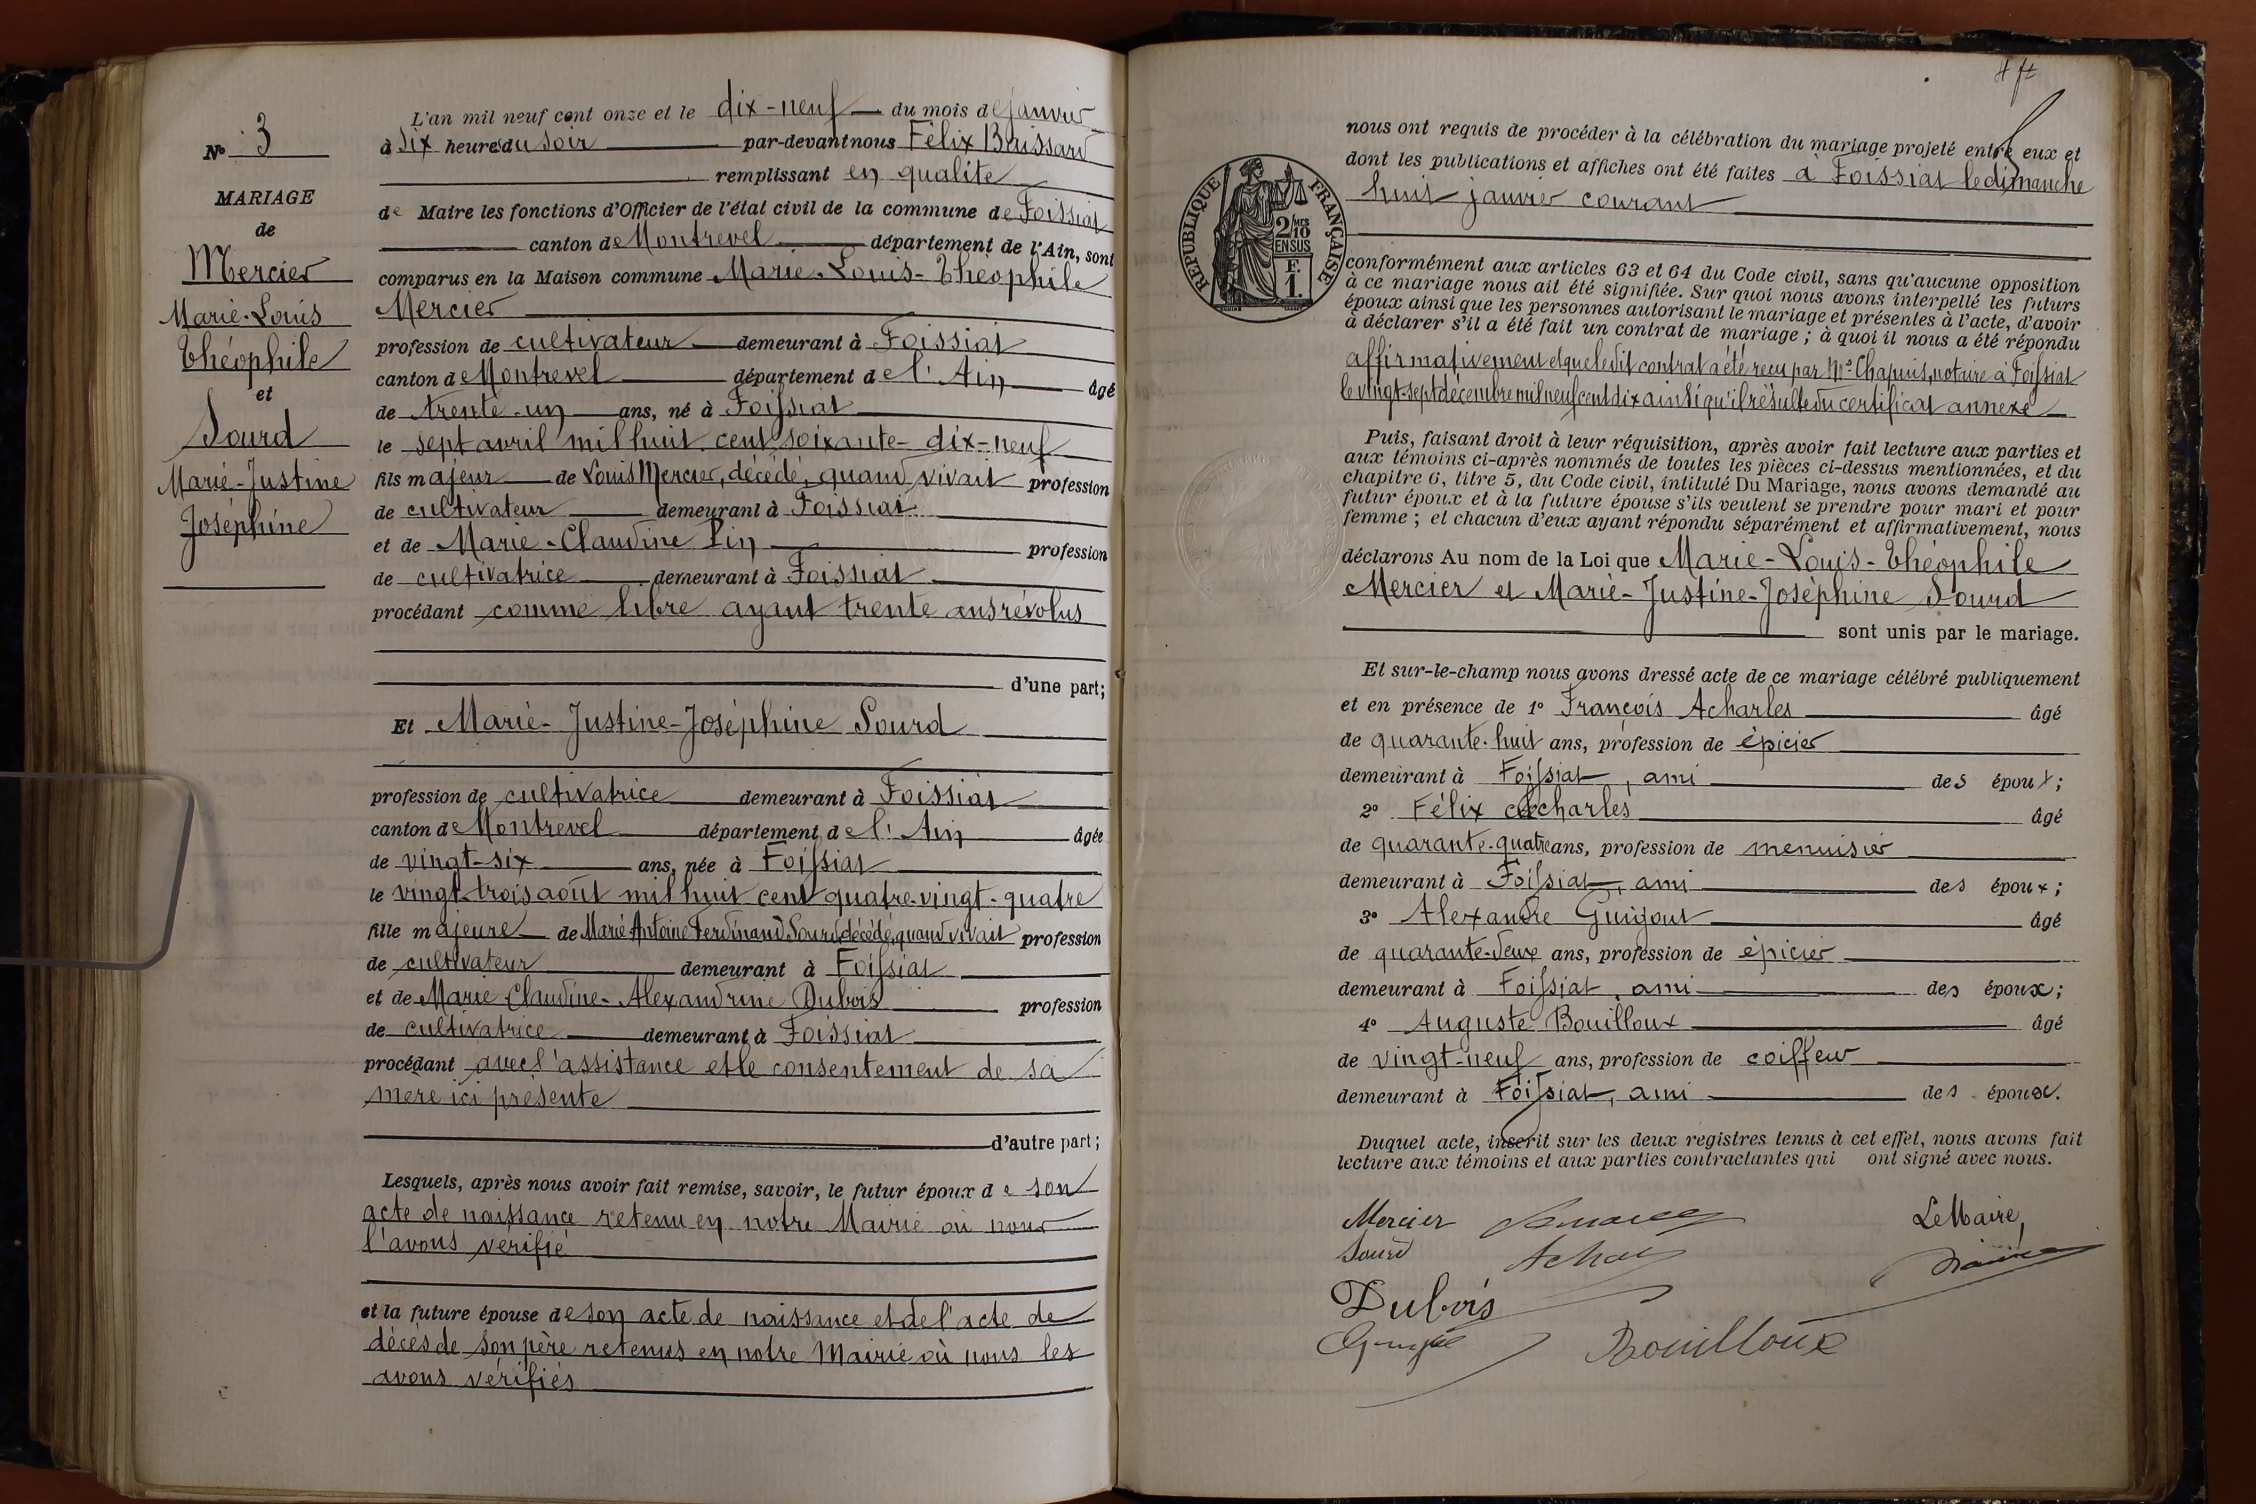 N° 3
MARIAGE
de
Mercier
Marie-Louis
Théophile
et
Sourd
Marie-Justine
Joséphine
L'an mil neuf cent onze et le dix-neuf du mois de janvier
à six heures du soir par-devant nous Félix
remplissant en qualité
de Maire les fonctions d'Officier de l'état civil de la commune de Foissiat
canton de Montrevel département de l'Ain, sont
comparus en la Maison commune Marie-Louis-Théophile
Mercier
profession de cultivateur demeurant à Foissiat
canton de Montrevel département de l'Ain âgé
de trente-un ans, né à Foissiat
le sept avril mil huit cent soixante-dix-neuf
fils majeur de Louis Mercier, décédé, quand vivait profession
de cultivateur demeurant à Foissiat
et de Marie-Claudine Pin profession
de cultivatrice demeurant à Foissiat
procédant comme libre ayant trente ans révolus
d'une part;
Et Marie-Justine-Joséphine Sourd
profession de cultivatrice demeurant à Foissiat
canton de Montrevel département de l'Ain âgée
de vingt-six ans, née à Foissiat
le vingt-trois août mil huit cent quatre-vingt-quatre
fille majeure de Marie Antoine Ferdinand Sourd, décédé, quand vivait profession
de cultivateur demeurant à Foissiat
et de Marie Claudine-Alexandrine Dubois profession
de cultivatrice demeurant à Foissiat
procédant avec l'assistance et le consentement de sa
mère ici présente
d'autre part;
Lesquels, après nous avoir fait remise, savoir, le futur époux de son
acte de naissance retenu en notre Mairie où nous
l'avons vérifié
et la future épouse de son acte de naissance et de l'acte de
décès de son père retenus en notre Mairie où nous les
avons vérifiés
RÉPUBLIQUE FRANÇAISE
2/10 MES
EN SUS
F.
1.
nous ont requis de procéder à la célébration du mariage projeté entre eux et
dont les publications et affiches ont été faites à Foissiat le dimanche
huit janvier courant
conformément aux articles 63 et 64 du Code civil, sans qu'aucune opposition
à ce mariage nous ait été signifiée. Sur quoi nous avons interpellé les futurs
époux ainsi que les personnes autorisant le mariage et présentes à l'acte, d'avoir
à déclarer s'il a été fait un contrat de mariage ; à quoi il nous a été répondu
affirmativement et que ledit contrat a été reçu par Me Chapuis, notaire à Foissiat
le vingt-sept décembre mil neuf cent dix ainsi qu'il résulte du certificat annexé
Puis, faisant droit à leur réquisition, après avoir fait lecture aux parties et
aux témoins ci-après nommés de toutes les pièces ci-dessus mentionnées, et du
chapitre 6, titre 5, du Code civil, intitulé Du Mariage, nous avons demandé au
futur époux et à la future épouse s'ils veulent se prendre pour mari et pour
femme ; et chacun d'eux ayant répondu séparément et affirmativement, nous
déclarons Au nom de la Loi que Marie-Louis-Théophile
Mercier et Marie-Justine-Joséphine Sourd
sont unis par le mariage.
Et sur-le-champ nous avons dressé acte de ce mariage célébré publiquement
et en présence de 1° François Acharles âgé
de quarante-huit ans, profession de épicier
demeurant à Foissiat, ami des époux;
2° Félix Acharles âgé
de quarante-quatre ans, profession de menuisier
demeurant à Foissiat, ami des époux;
3° Alexandre Guigout âgé
de quarante-deux ans, profession de épicier
demeurant à Foissiat, ami des époux;
4° Auguste Bouilloux âgé
de vingt-neuf ans, profession de coiffeur
demeurant à Foissiat, ami des époux.
Duquel acte, inscrit sur les deux registres tenus à cet effet, nous avons fait
lecture aux témoins et aux parties contractantes qui ont signé avec nous.
Mercier
Le Maire,
Sourd
Dubois
Bouilloux